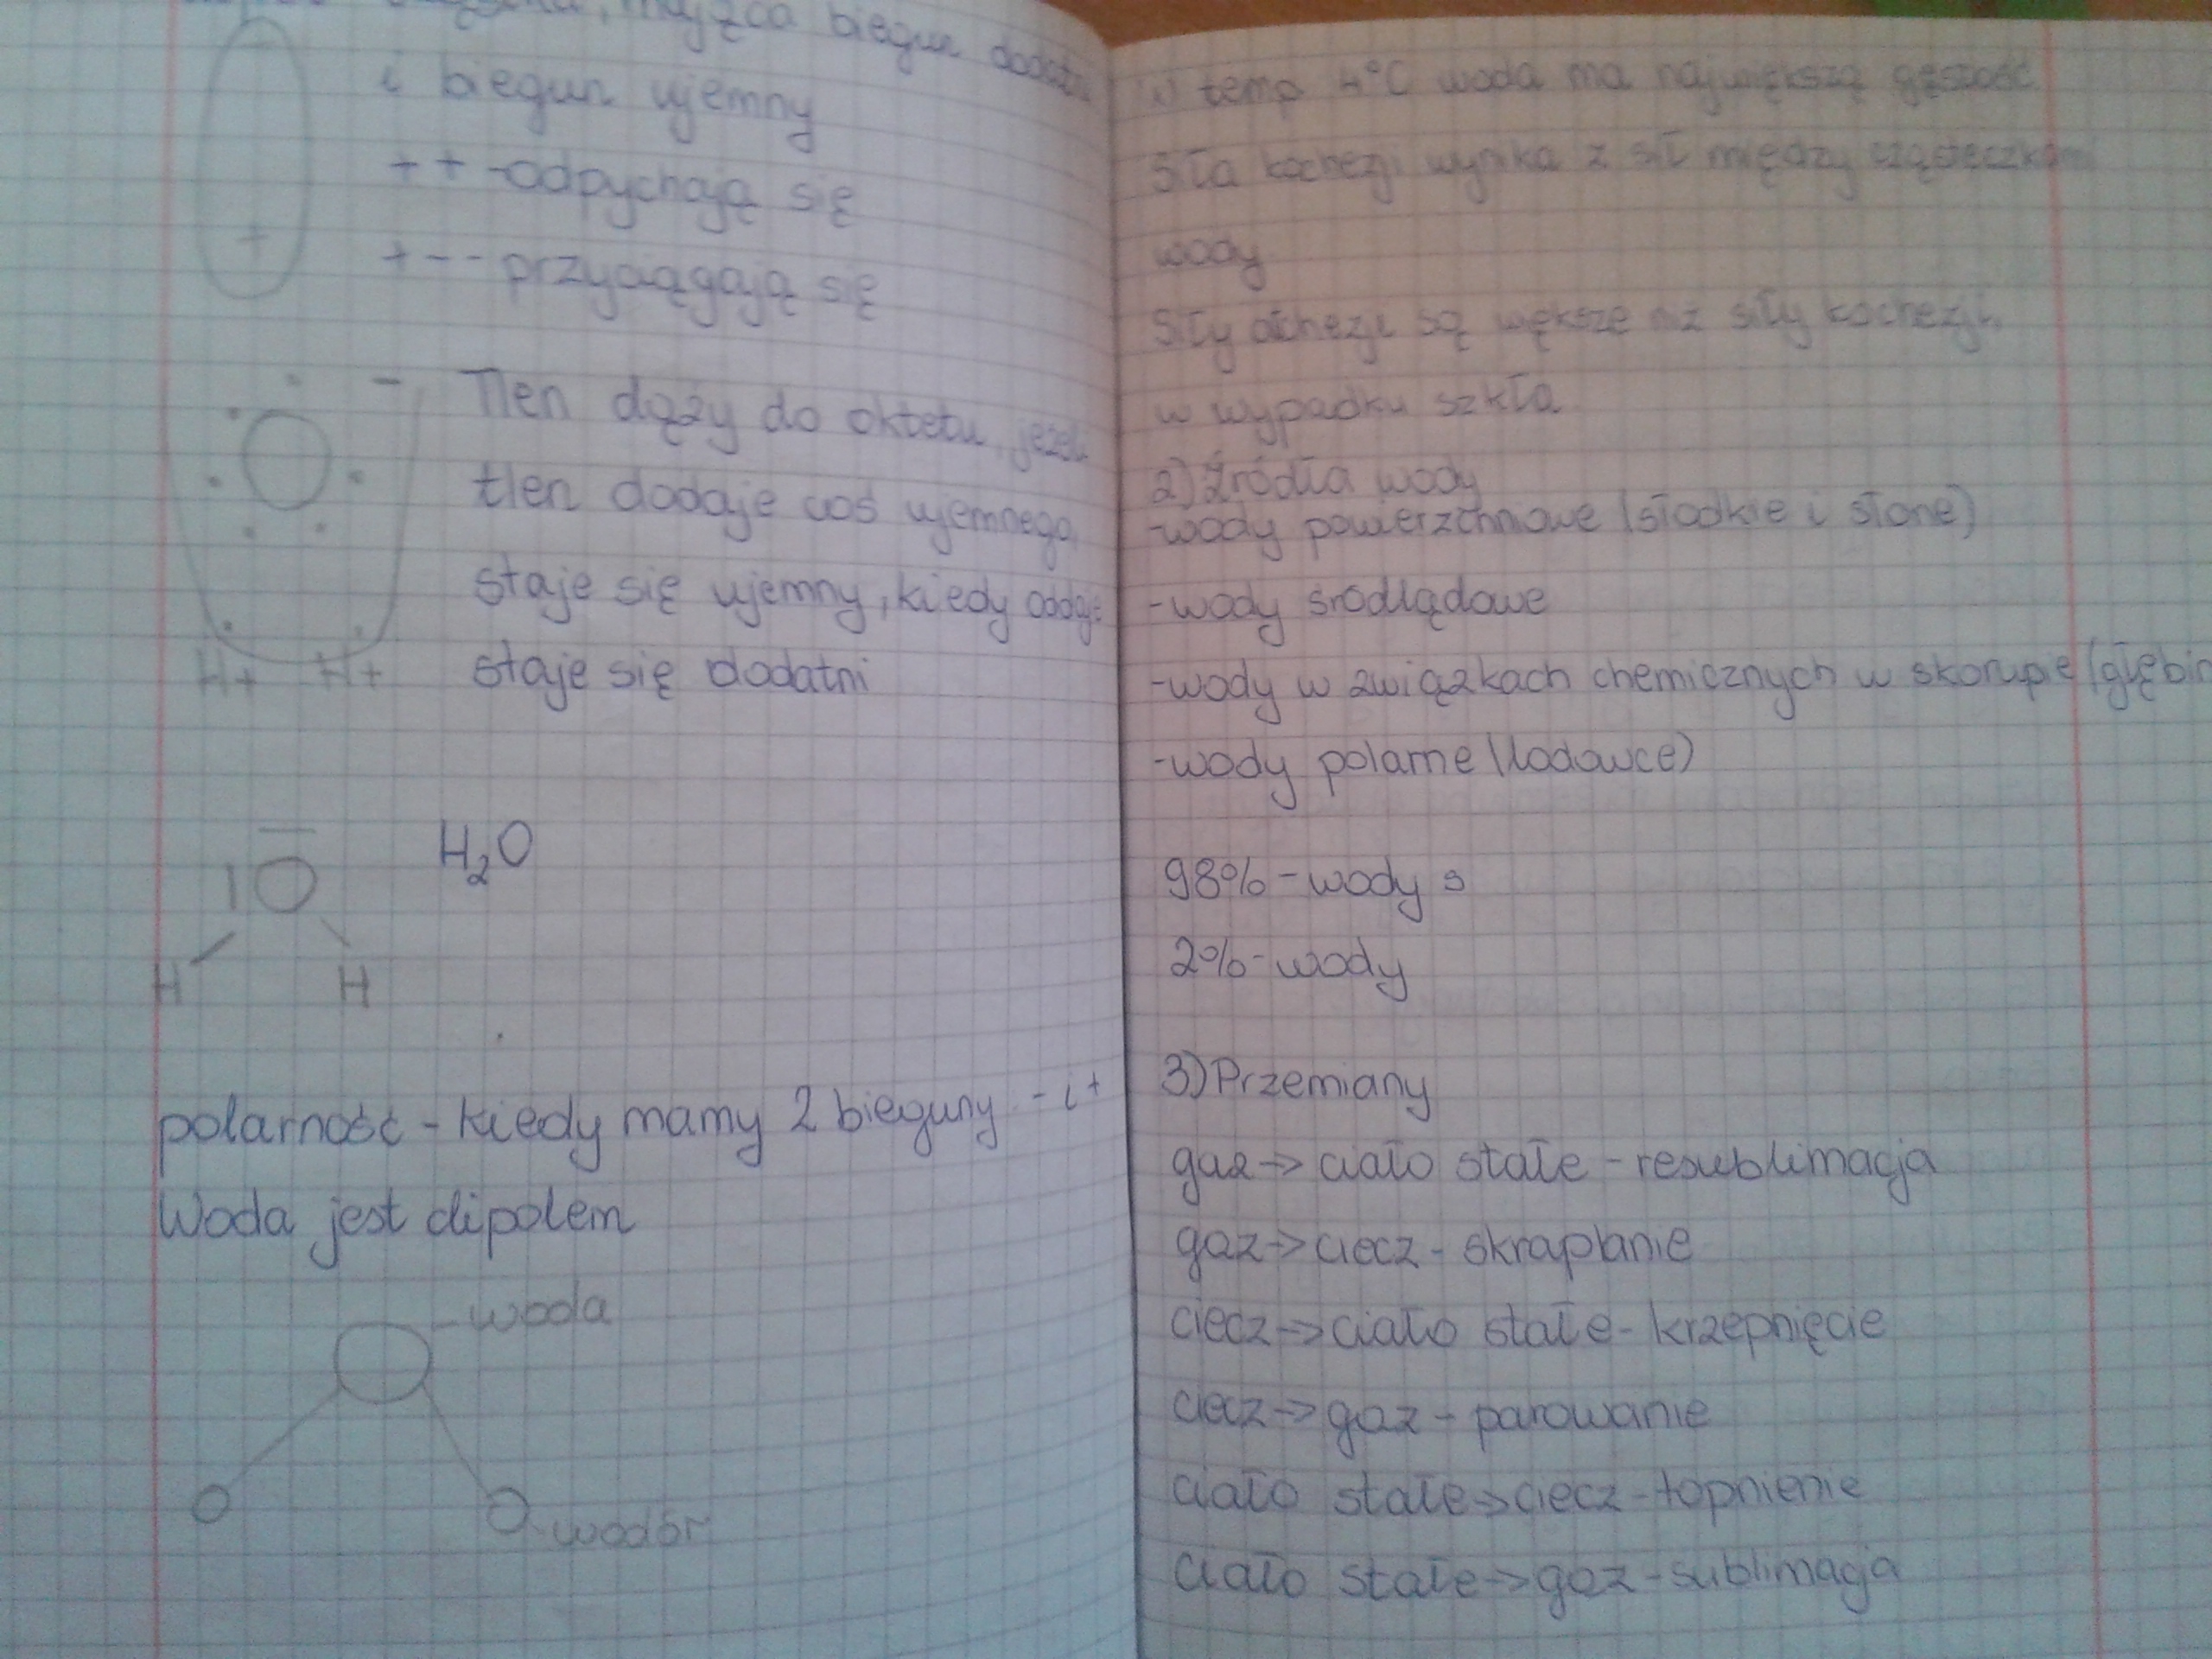 mająca biegun dodatni
i biegun ujemny
++ - odpychają się
+ - - przyciągają się
- Tlen dąży do oktetu, jeżeli
tlen dodaje coś ujemnego
staje się ujemny, kiedy oddaje
staje się dodatni
H+ H+
H₂O
O
H H
polarność - kiedy mamy 2 bieguny - i +
Woda jest dipolem
- woda
wodór
W temp 4°C woda ma największą gęstość.
Siła kochezji wynika z sił między cząsteczkami
wody
Siły adhezji są większe niż siły kochezji,
w wypadku szkła.
2) Źródła wody
- wody powierzchniowe (słodkie i słone)
- wody śródlądowe
- wody w związkach chemicznych w skorupie (głębin
- wody polarne (lodowce)
98% - wody s
2% - wody
3) Przemiany
gaz -> ciało stałe - resublimacja
gaz -> ciecz - skraplanie
ciecz -> ciało stałe - krzepnięcie
ciecz -> gaz - parowanie
ciało stałe -> ciecz - topnienie
ciało stałe -> gaz - sublimacja